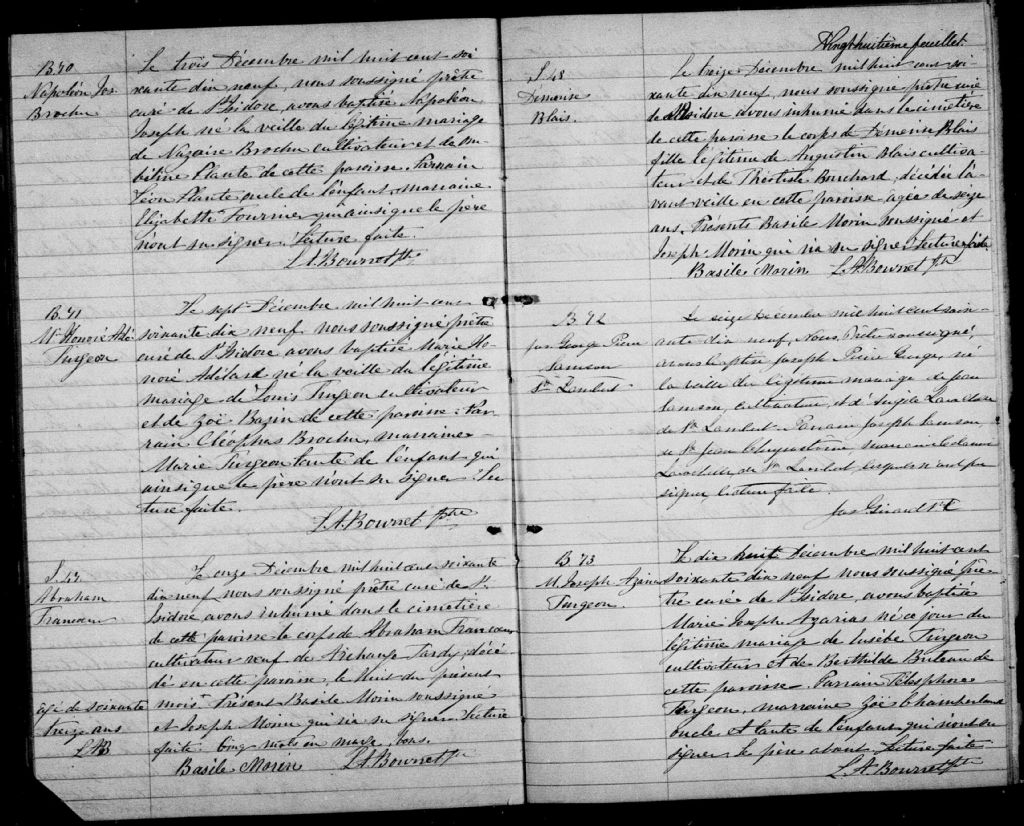 B.70
Napoléon Jos.
Brochu
Le trois Décembre mil huit cent soi
xante dix neuf, nous soussigné prêtre
curé de St Isidore, avons baptisé Napoléon
Joseph né la veille du légitime mariage
de Nazaire Brochu cultivateur et de
Plante de cette paroisse. Parrain
Léon Plante oncle de l'enfant, marraine
Elizabeth Fournier qui ainsi que le père
n'ont su signer. Lecture faite.
L.A. Bourret Ptre
B.71
M. Honoré Adé.
Turgeon
Le sept Décembre mil huit cent
soixante dix neuf nous soussigné prêtre
curé de St Isidore avons baptisé Marie Ho
noré Adélard né la veille du légitime
mariage de Louis Turgeon cultivateur
et de Zoë Bazin de cette paroisse. Par
rain Cléophas Brochu, marraine
Marie Turgeon tante de l'enfant qui
ainsi que le père n'ont su signer. Lec
ture faite.
L.A. Bourret Ptre
S.47
Abraham
Francoeur
Le onze Décembre mil huit cent soixante
dix neuf nous soussigné prêtre curé de St
Isidore avons inhumé dans le cimetière
de cette paroisse le corps de Abraham Francoeur
cultivateur veuf de Archange Tardif, décé
dé en cette paroisse, le huit du présent
mois. Présent Basile Morin soussigné
et Joseph Morin qui n'a su signer. Lecture
faite. Cinq mots en marge, bons.
Basile Morin L.A. Bourret Ptre
agé de soixante
treize ans
L.A.B
Vingt huitième feuillet
S.48
Démerise
Blais.
Le treize Décembre mil huit cent soi-
xante dix neuf, nous soussigné prêtre curé
de St Isidore avons inhumé dans le cimetière
de cette paroisse le corps de Démerise Blais
fille légitime de Augustin Blais cultiva-
teur et de Théotiste Bouchard, décédée l'a-
vant veille en cette paroisse agée de seize
ans. Présents Basile Morin soussigné et
Joseph Morin qui n'a su signer. Lecture faite
Basile Morin L.A. Bourret Ptre
B.72
Jos. George Pierre
Samson
St Lambert
Le seize Décembre mil huit cent soix-
ante dix neuf, Nous, Prêtre soussigné,
avons baptisé Joseph Pierre George, né
la veille du légitime mariage de Jean
Samson, cultivateur, et d'Angèle Larochelle
de St Lambert. Parrain Joseph Samson,
de St Jean Chrysostôme, marraine
Larochelle, de St Lambert lesquels n'ont pu
signer, lecture faite.
Jos Girard Ptre
B.73
M. Joseph Azarias
Turgeon.
Le dix huit Décembre mil huit cent
soixante dix neuf nous soussigné prê-
tre curé de St Isidore, avons baptisé
Marie Joseph Azarias né ce jour du
légitime mariage de Eusèbe Turgeon
cultivateur et de Berthilde Buteau de
cette paroisse. Parrain Télesphore
Turgeon, marraine Zoë Chamberland
oncle et tante de l'enfant qui n'ont su
signer, le père absent. Lecture faite
L.A. Bourret Ptre